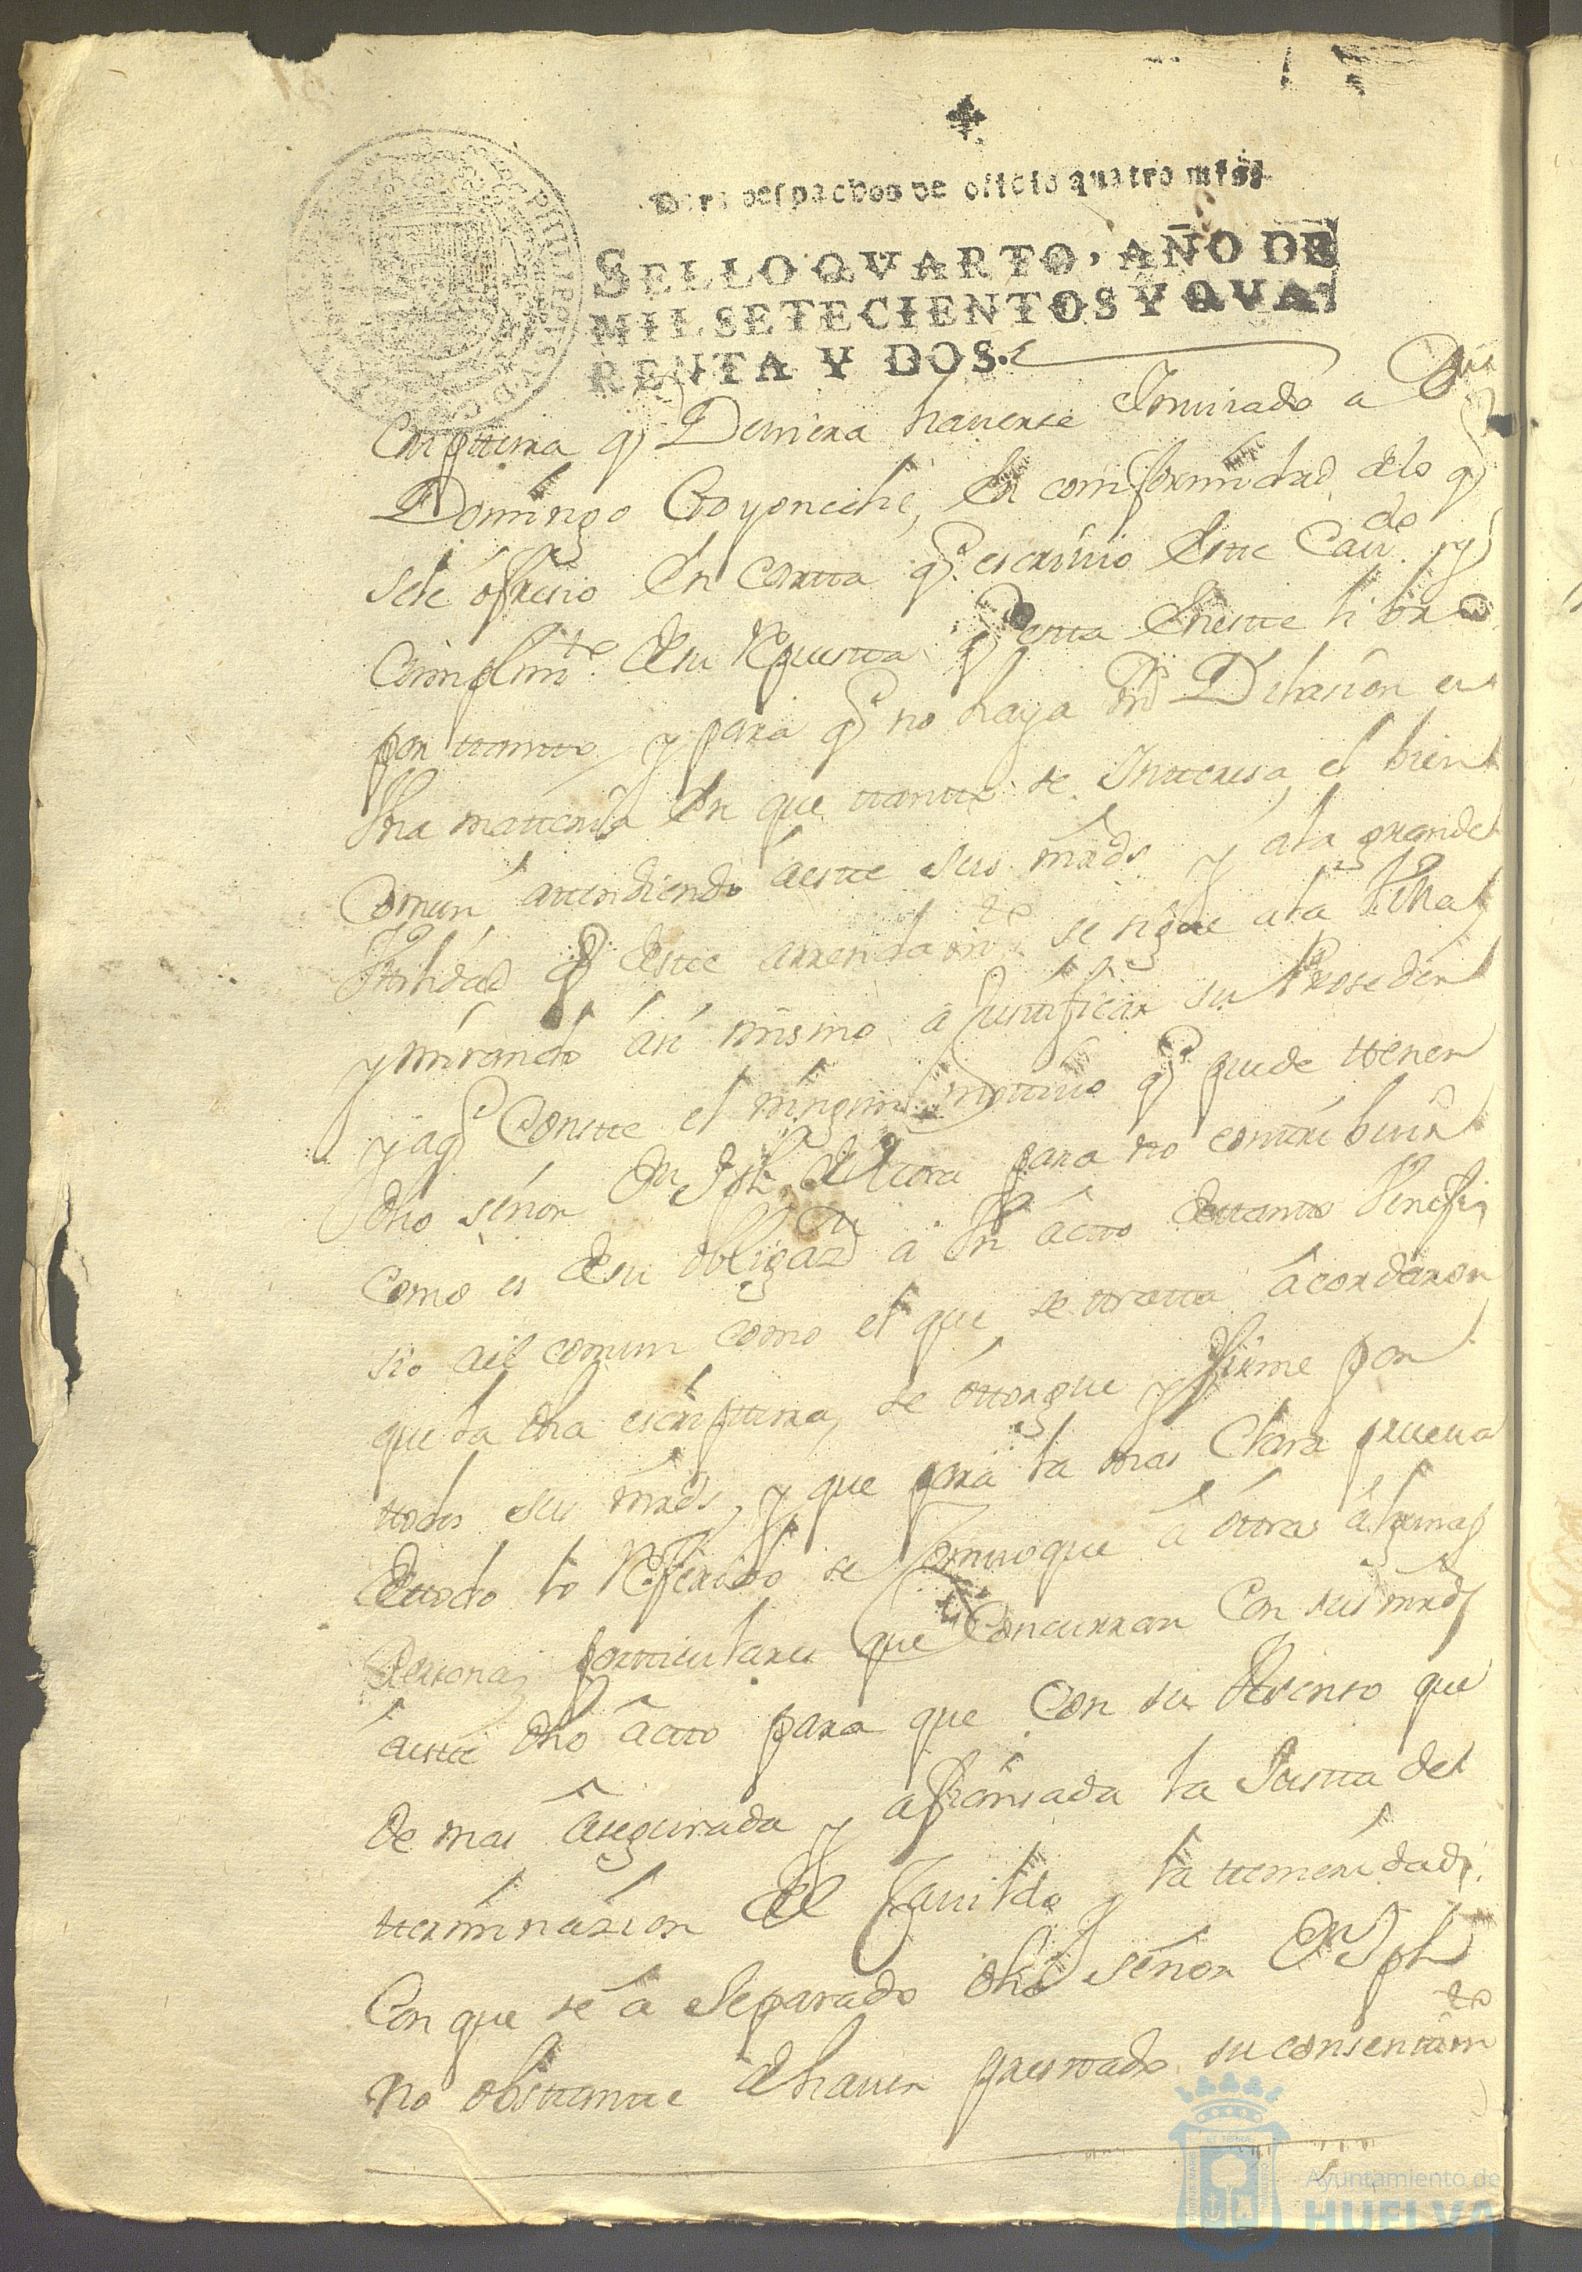 Para despachos de oficio quatro mrs.
SELLO QVARTO, AÑO DE
MIL SETECIENTOS Y QVA-
RENTA Y DOS.
criptura q Deviera haverse Inviado a Dn
Domingo Goyoneche, En conformidad delo q
sele ofresio En cartta q. escrivio Estte Cavdo. y
Complimto. desu Repuestta q estta Enestte libro
por ttantto, y para q no haya mas Dilasion en
Una matteria En que ttantto se Intteresa el bien
Comun, attendiendo áestte sus mrds y ala grande
Uttilidad q destte arrendamto. se sigue ala Villa
y mirando asi mismo a Justtificar su Proseder
y a q Constte el ningun mottivo q puede ttener
dho señor Dn Jph. de para no conttribuir
como es desu obligazn a Un actto dettantto Venefi
sio al comun como el que se ttratta acordaron
que la dha escripttura, se ottorgue y firme por
ttodos sus mrds, y que para la mas Clara prueva
dettodo lo Referido se Convoque a ottras algunas
Personas partticulares que Concurran Con sus mrds
áestte dho actto para que Con su Asenso que
de mas asegurada y afiansada la Justta det
tterminazion del Cavildo y la ttemeridad
Con que se a separado dho señor Dn Jph
no obsttantte de haver presttado su consenttimto
Ayuntamiento de
HUELVA